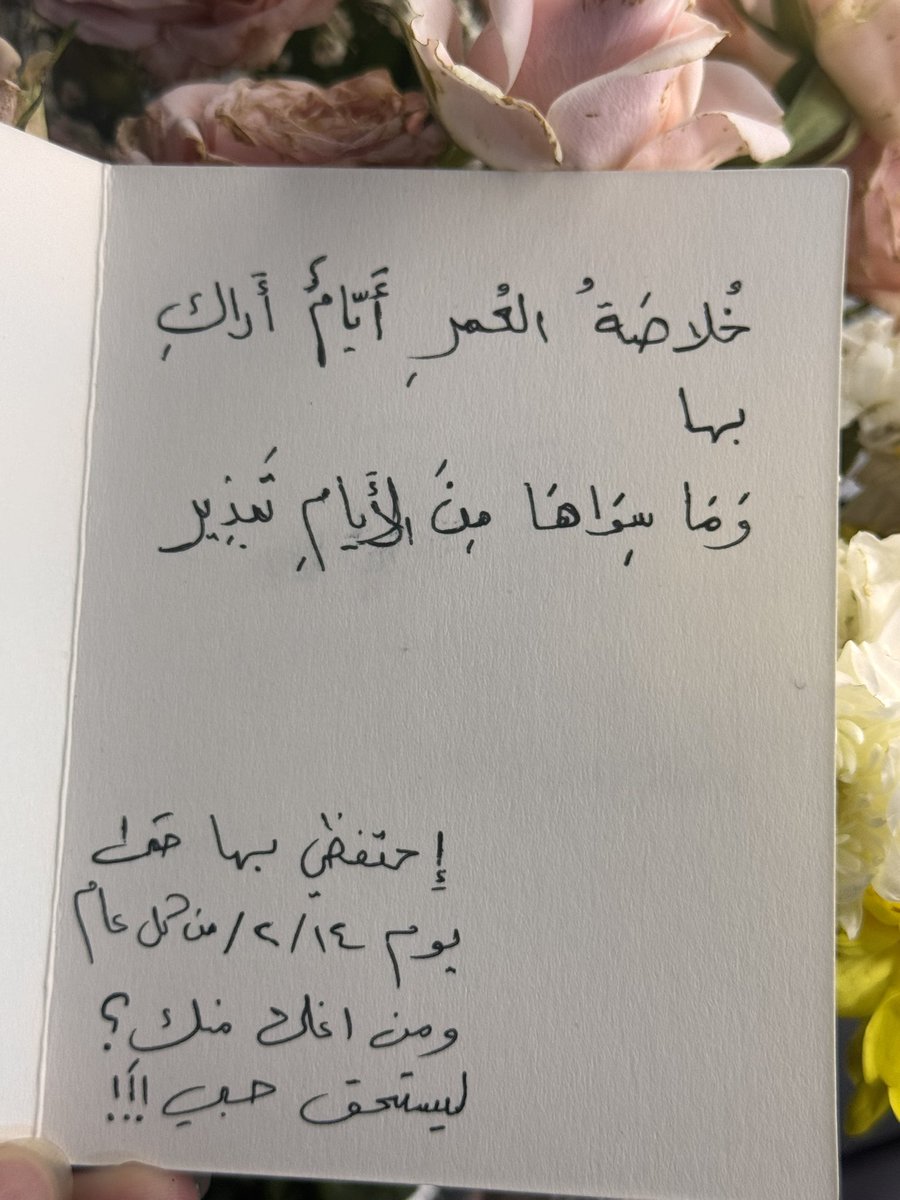 خُلاصَةُ العُمرِ أَيّامٌ أَراكِ
بها
وَمَا سِوَاهَا مِنَ الأَيامِ تَبذِير
إحتفظي بها حتى
يوم ٢/١٤/ من كل عام
ومن اغلى منك؟
ليستحق حبي !!!